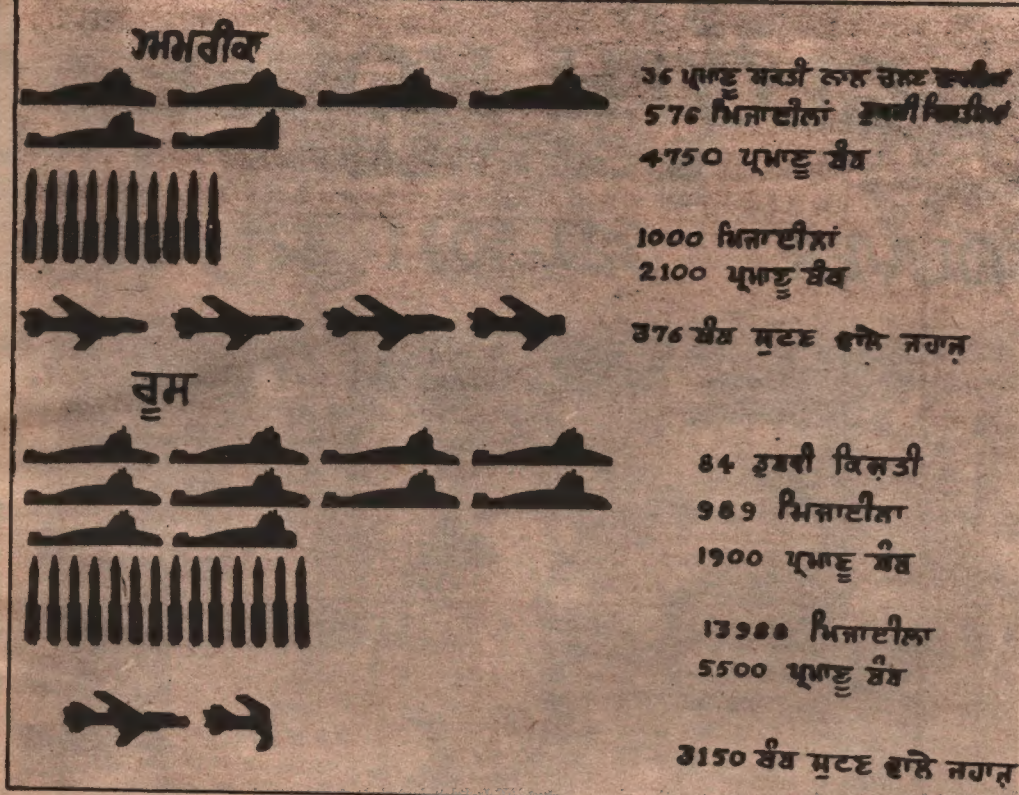 ਅਮਰੀਕਾ
36 ਪ੍ਰਮਾਣੂ ਸ਼ਕਤੀ ਨਾਲ ਚਲਣ ਵਾਲੀਆਂ
576 ਮਿਜ਼ਾਈਲਾਂ ਡੁਬਕੀ ਕਿਸ਼ਤੀਆਂ
4750 ਪ੍ਰਮਾਣੂ ਬੰਬ
1000 ਮਿਜ਼ਾਈਲਾਂ
2100 ਪ੍ਰਮਾਣੂ ਬੰਬ
376 ਬੰਬ ਸੁਟਣ ਵਾਲੇ ਜਹਾਜ਼
ਰੂਸ
84 ਡੁਬਕੀ ਕਿਸ਼ਤੀ
989 ਮਿਜ਼ਾਈਲਾ
1900 ਪ੍ਰਮਾਣੂ ਬੰਬ
13988 ਮਿਜ਼ਾਈਲਾ
5500 ਪ੍ਰਮਾਣੂ ਬੰਬ
3150 ਬੰਬ ਸੁਟਣ ਵਾਲੇ ਜਹਾਜ਼